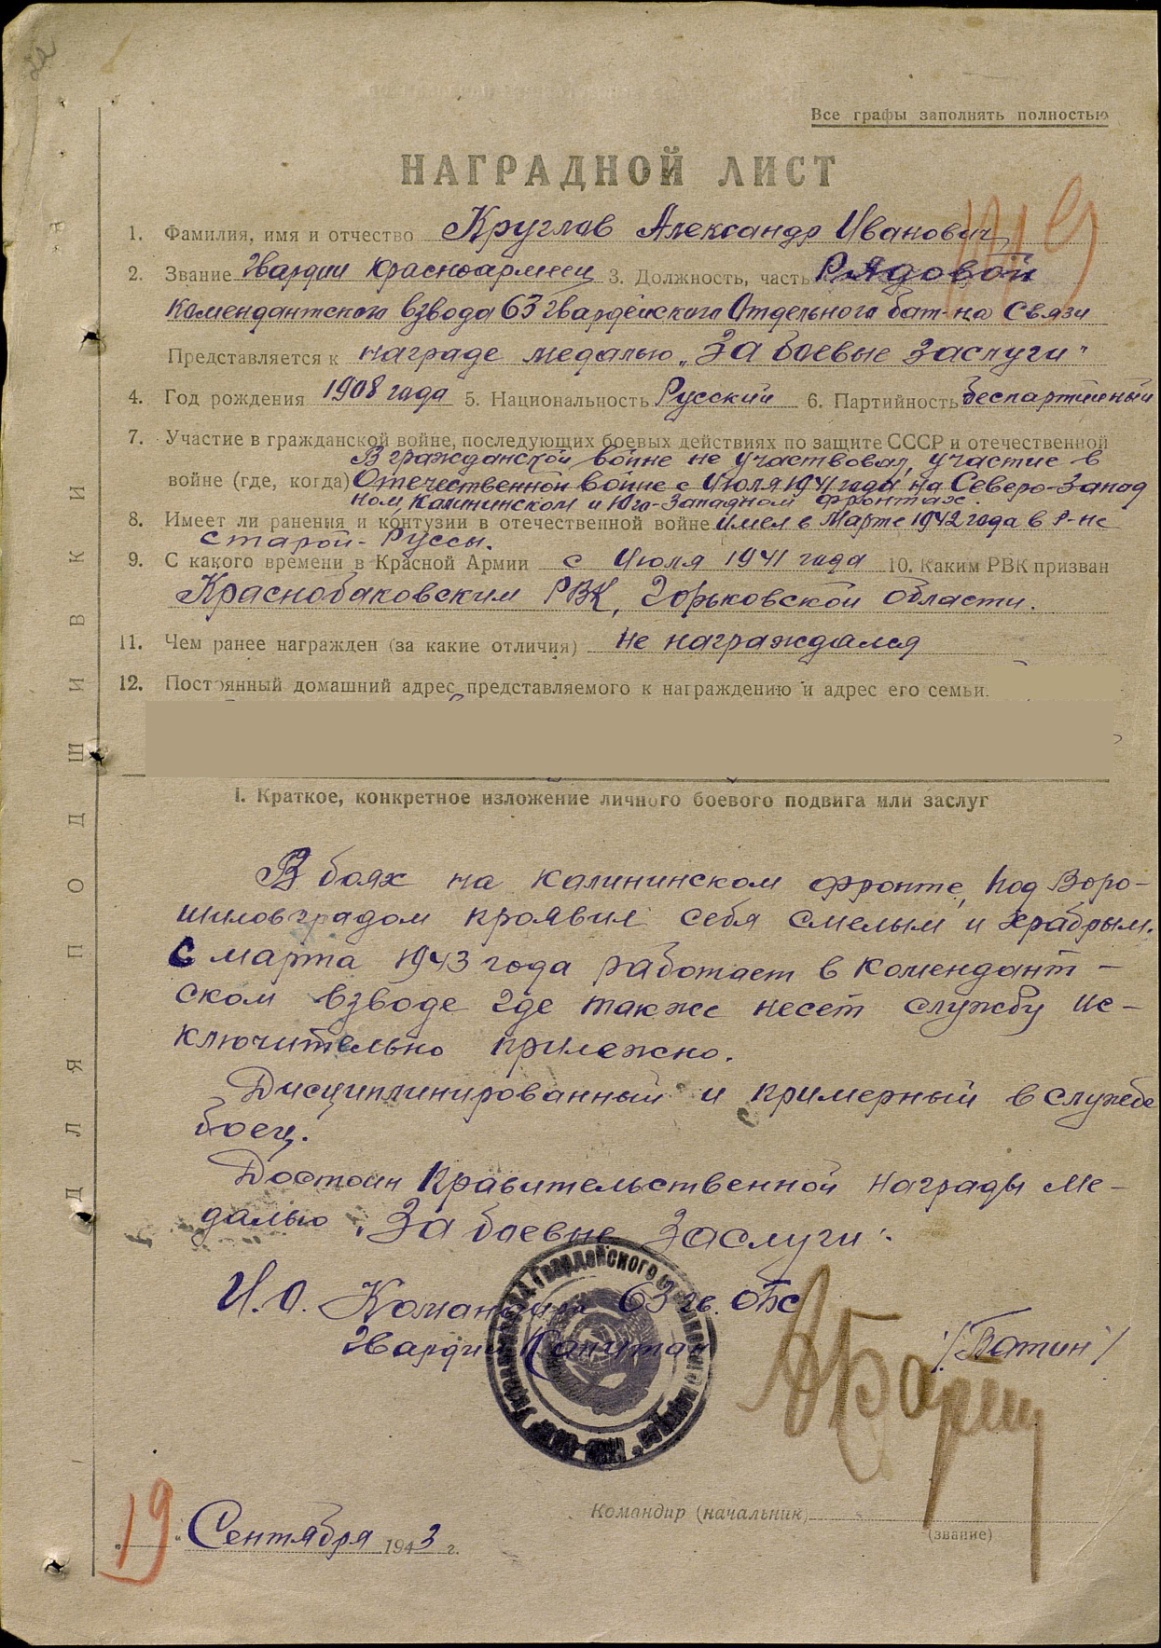 Все графы заполнять полностью
НАГРАДНОЙ ЛИСТ
1. Фамилия, имя и отчество Круглов Александр Иванович
2. Звание Гвардии красноармеец 3. Должность, часть Рядовой
комендантского взвода 63 гвардейского Отдельного бат-на Связи
Представляется к награде медалью „За боевые заслуги"
4. Год рождения 1908 года 5. Национальность Русский 6. Партийность беспартийный
7. Участие в гражданской войне, последующих боевых действиях по защите СССР и отечественной
В гражданской войне не участвовал, участие в
войне (где, когда) Отечественной войне с Июля 1941 года на Северо-Запад
ном, Калининском и Юго-Западном фронтах.
8. Имеет ли ранения и контузии в отечественной войне имел в Марте 1942 года в р-не
Старой-Руссы.
9. С какого времени в Красной Армии с Июля 1941 года 10. Каким РВК призван
Краснобаковским РВК, Горьковской области.
11. Чем ранее награжден (за какие отличия) не награждался
12. Постоянный домашний адрес представляемого к награждению и адрес его семьи.
I. Краткое, конкретное изложение личного боевого подвига или заслуг
В боях на калининском фронте, под Воро-
шиловградом проявил себя смелым и храбрым.
С марта 1943 года работает в комендант-
ском взводе где также несет службу ис-
ключительно прилежно.
Дисциплинированный и примерный в службе
боец.
Достоин правительственной награды ме-
далью „За боевые заслуги".
И.О. Командира 63 гв. ОБС
Гвардии Капитан /Батин/
19 Сентября 1943 г.
Командир (начальник)
(звание)
ДЛЯ ПОДШИВКИ